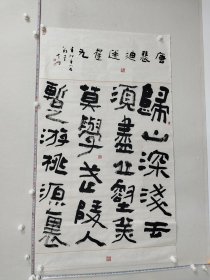 唐裴迪送崔九
歸山深淺去
須盡丘壑美
莫學武陵人
暫游桃源裏